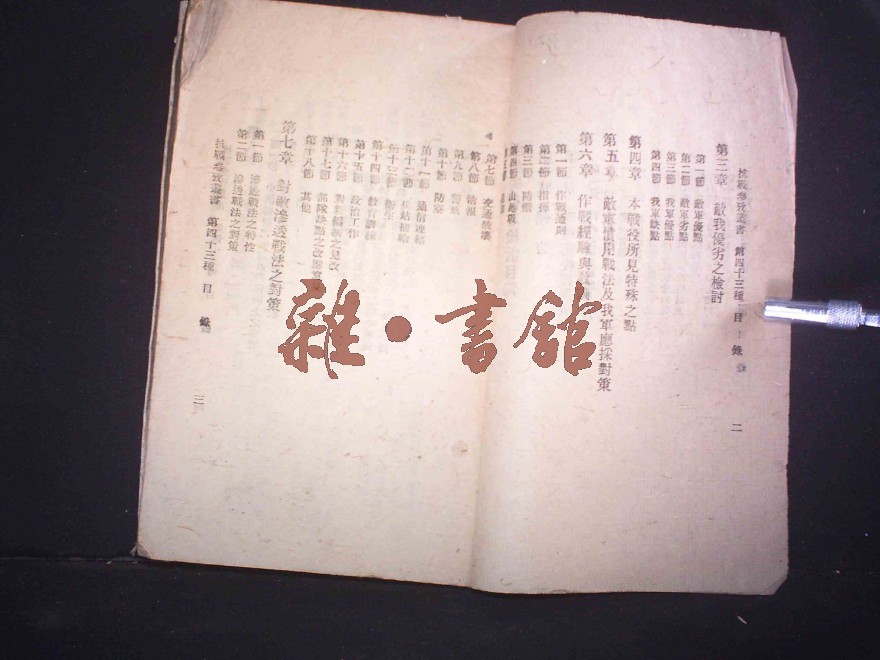 抗戰參攷叢書 第四十三種 目 錄 二
第三章 敵我優劣之檢討
第一節 敵軍優點
第二節 敵軍劣點
第三節 我軍優點
第四節 我軍缺點
第四章 本戰役所見特殊之點
第五章 敵軍慣用戰法及我軍應採對策
第六章 作戰經驗與
第一節 作戰通則
第二節 指揮
第三節 防禦
第四節 山地戰
第七節 交通破壞
第八節 情報
第九節 警戒
第十節 防空
第十一節 通信連絡
第十二節 兵站補給
第十三節 衛生
第十四節 教育訓練
第十五節 政治工作
第十六節 對於編制之見改
第十七節 部隊缺點之改進
第十八節 其他
第七章 對敵滲透戰法之對策
第一節 滲透戰法之特性
第二節 滲透戰法之對策
抗戰參攷叢書 第四十三種 目 錄 三
雜·書館